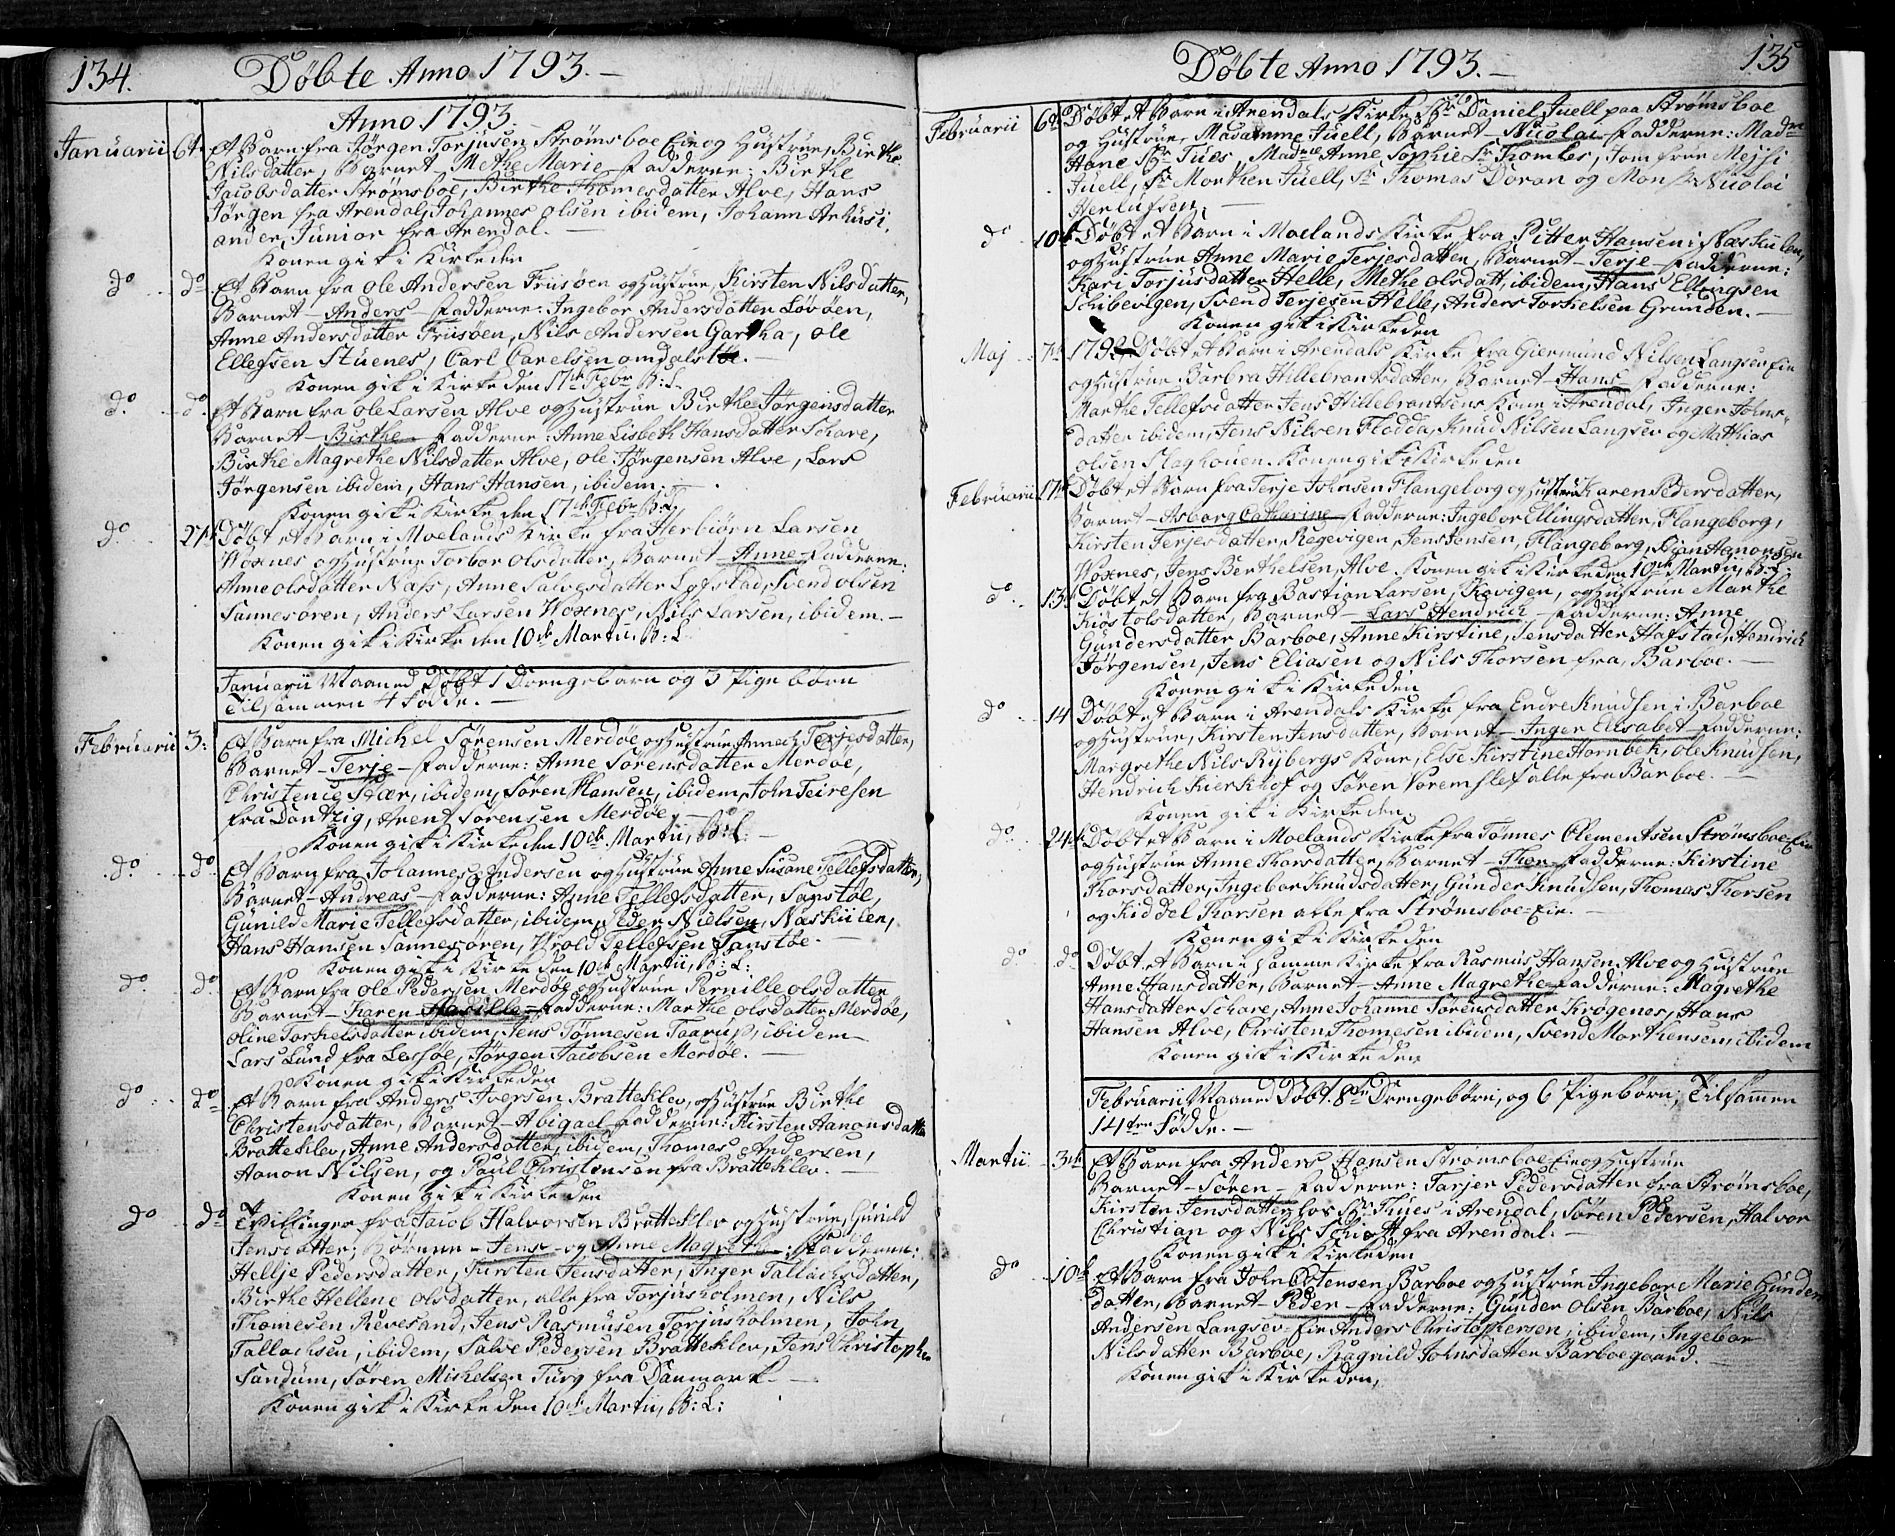 134.
Döbte Anno 1793.
Anno 1793.
Januarii 6te Et Barn fra Jørgen Torjusen Strømsboe Eie og Hustrue, Birthe
Nilsdatter, Barnet Methe Marie Fadderne: Birthe
Jacobsdatter Strømsboe, Birthe Thomesdatter Alve, Hans
Jørgen fra Arendal, Johannes Olsen ibidem, Johann Arhusi
ander, Junior fra Arendal.
Konen gik i Kirke den
do do Et Barn fra Ole Andersen Friisøen og Hustrue, Kirsten Nilsdatter,
Barnet Anders Fadderne: Ingebor Andersdatter Løvøen,
Anne Andersdatter Friisøen, Nils Andersen Gartha, Ole
Ellefsen Stuenes, Carl Carelsen omdalstøe.
Konen gik i Kirke den 17de Febr B: L.
do. do. Et Barn fra Ole Larsen Alve og Hustrue Birthe Jørgensdatter
Barnet Birthe Fadderne: Anne Lisbeth Hansdatter Schare,
Birthe Magrethe Nilsdatter Alve, Ole Jørgensen Alve, Lars
Jørgensen ibidem, Hans Hansen, ibidem.
Konen gik i Kirke den 17de Febr B: L.
do 27de Døbt et Barn i Moelands Kirke fra Herbiørn Larsen
Woxnes og Hustrue Torbor Olsdatter, Barnet Anne Fadderne:
Anne olsdatter Nass, Anne Salvesdatter Lofstad, Svend Olsen
Sannesøren, Anders Larsen Woxnes, Nils Larsen, ibidem.
Konen gik i Kirke den 10de Martii, B: L
Januarii Maaned Døbt 1 Drengebarn og 3 Pige børn
Tilsammen 4 Fødde.
Februarii 3: Et Barn fra Michel Sørensen Merdøe og Hustrue Annech Terjesdatter,
Barnet Terje Fadderne: Anne Sørensdatter Merdøe,
Christence Stær, ibidem, Søren Hansen, ibidem, John Teiresen
fra Dantzig, Arent Sørensen Merdøe,
Konen gik i Kirke den 10de Martii, B: L:
do do Et Barn fra Johannes Andersen og Hustrue Anne Susane Tellefsdatter,
Barnet Andreas Fadderne: Anne Tellefsdatter, Sanstøe,
Gunild Marie Tellefsdatter, ibidem, Peder Nielsen, Naskiilen,
Hans Hansen Sannesøren, Wrold Tellefsen Sanstøe.
Konen gik i Kirke den 10de Martii, B: L:
do do. Et Barn fra Ole Pedersen Merdøe og Hustrue Pernille Olsdatter
Barnet Karen Fadderne: Marthe Olsdatter Merdøe,
Oline Torkelsdatter ibidem, Jens Tønnesen Taarup, ibidem
Lars Lund fra Lessøe, Jørgen Jacobsen Merdøe.
Konen gik i Kirke den
do do Et Barn fra Anders Iversen Bratteklev, og Hustrue Birthe
Christensdatter, Barnet Abigael Fadderne: Kirsten Aanonsdatter
Bratteklev, Anne Andersdatter, ibidem, Thomes Andersen,
Aanon Nilsen, og Poul Christensen fra Bratteklev.
Konen gik i Kirke den
do do Tvillinger fra Jacob Halvorsen Bratteklev og Hustrue, Gunild
Jensdatter; Børnene Jens og Anne Magrethe; Fadderne:
Hellje Pedersdatter, Kirsten Jensdatter, Inger Tallachsdatter,
Birthe Hellene Olsdatter, alle fra Torjusholmen, Nils
Thomesen Revesand, Jens Rasmusen Torjusholmen, John
Tallachsen, ibidem, Salve Pedersen Bratteklev, Jens Christopher
Sandum, Søren Michelsen Furg fra Danmark.
Konen gik i Kirke den 10de Martii, B: L:
Döbte Anno 1793.
135
Februarii 6te Døbt et Barn i Arendals Kirke Sr Daniel Juell paa Strømsboe
og Hustrue, Madamme Juell, Barnet Nicolai Fadderne: Madme
Hane Sr Tues, Madme Anne Sophie Sr Thombes, Jomfrue Mejsi
Juell, Sr Morthen Juell, Sr Thomas Doran og Monsr Nicolai
Herlufsen,
do 10de Døbt et Barn i Moelands Kirke fra Pitter Hansen i Næskiilen,
og Hustrue Anne Marie Terjesdatter, Barnet Terje Fadderne:
Kari Torjusdatter Helle, Methe Olsdatt, ibidem, Hans Ellingsen
Schibevigen, Svend Terjesen Helle, Anders Torkelsen Grunden.
Konen gik i Kirke den
Maj 7de 1792 Døbt et Barn i Arendals Kirke fra Giermund Nilsen Langsev Eie
og Hustrue, Barbra Hillebrantsdatter, Barnet Hans Fadderne:
Marthe Tellefsdatter Jens Hillebrantsens Kone i Arendal, Inger Johns
datter ibidem, Jens Nilsen Flodda, Knud Nilsen Langsev og Mathias
Olsen Slaghouen. Konen gik i Kirke den
Februarii 17de Døbt et Barn fra Terje Johnsen Flangeborg og Hustrue Karen Pedersdatter,
Barnet Asborg Catharine Fadderne: Ingebor Ellingsdatter, Flangeborg,
Kirsten Terjesdatter, Regevigen, Jens Jensen, Flangeborg, Stian Aanonsen
Woxnes, Jens Berthelsen, Alve. Konen gik i Kirke den 10de Martii, B: L.
do 13de Døbt et Barn fra Bastian Larsen, Skovigen, og Hustrue Marthe
Kiøstolsdatter, Barnet Lars Hendrich Fadderne: Anne
Gundersdatter Barboe, Anne Kirstine, Jensdatter Hafstad, Hendrich
Jørgensen, Jens Eliasen og Nils Thorsen fra, Barboe.
Konen gik i Kirke den
do 14 Døbt et Barn i Arendals Kirke fra Endre Knudsen i Barboe
og Hustrue, Kirsten Jensdatter, Barnet Inger Elisabet Fadderne:
Margrethe Nils Rybergs Kone, Else Kirstine Hornbek, Ole Knudsen,
Hendrich Kierkhof og Søren Voremslef alle fra Barboe.
Konen gik i Kirke den
do 24de Døbt et Barn i Moelands Kirke fra Tønnes Clementsen Strømsboe Eie
og Hustrue Anne Thorsdatter, Barnet Thor Fadderne: Kirstine
Thorsdatter, Ingebor Knudsdatter, Gunder Knudsen, Thomas Thorsen
og Kiddel Thorsen alle fra Strømsboe Eie.
Konen gik i Kirke den
do do Døbt et Barn i samme Kirke fra Rasmus Hansen Alve og Hustrue
Anne Hansdatter, Barnet Anne Magrethe Fadderne: Magrethe
Hansdatter Schare, Anne Johanne Sørensdatter Krøgenes, Hans
Hansen Alve, Christen Thomesen ibidem, Svend Morthensen, ibidem
Konen gik i Kirke den
Februarii Maaned Døbt 8te Drengebørn, og 6 Pigebørn, Tilsammen
14ten Fødde.
Martii 3de Et Barn fra Anders Hansen Strømsboe Eie og Hustrue
Barnet Søren Fadderne: Tarjer Pedersdatter fra Strømsboe,
Kirsten Jensdatter, hos Sr Tues i Arendal, Søren Pedersen, Halvor
Christian og Nils Schiøtt fra Arendal.
Konen gik i Kirke den
do 10de Et Barn fra John Ostensen Barboe og Hustrue Ingebor Marie Gunders
datter, Barnet Peder Fadderne: Gunder Olsen Barboe, Nils
Andersen Langsev Eie Anders Christophersen, ibidem, Ingebor
Nilsdatter Barboe, Ragnild Johnsdatter Barboegaard.
Konen gik i Kirke den,